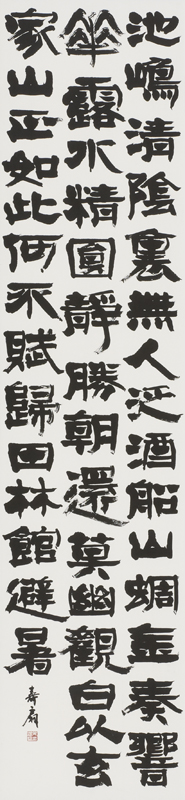 池嶋清陰裏無人泛酒船山蜩金奏響
華露水精圓靜勝朝還莫幽觀白以玄
家山正如此何不賦歸田林館避暑